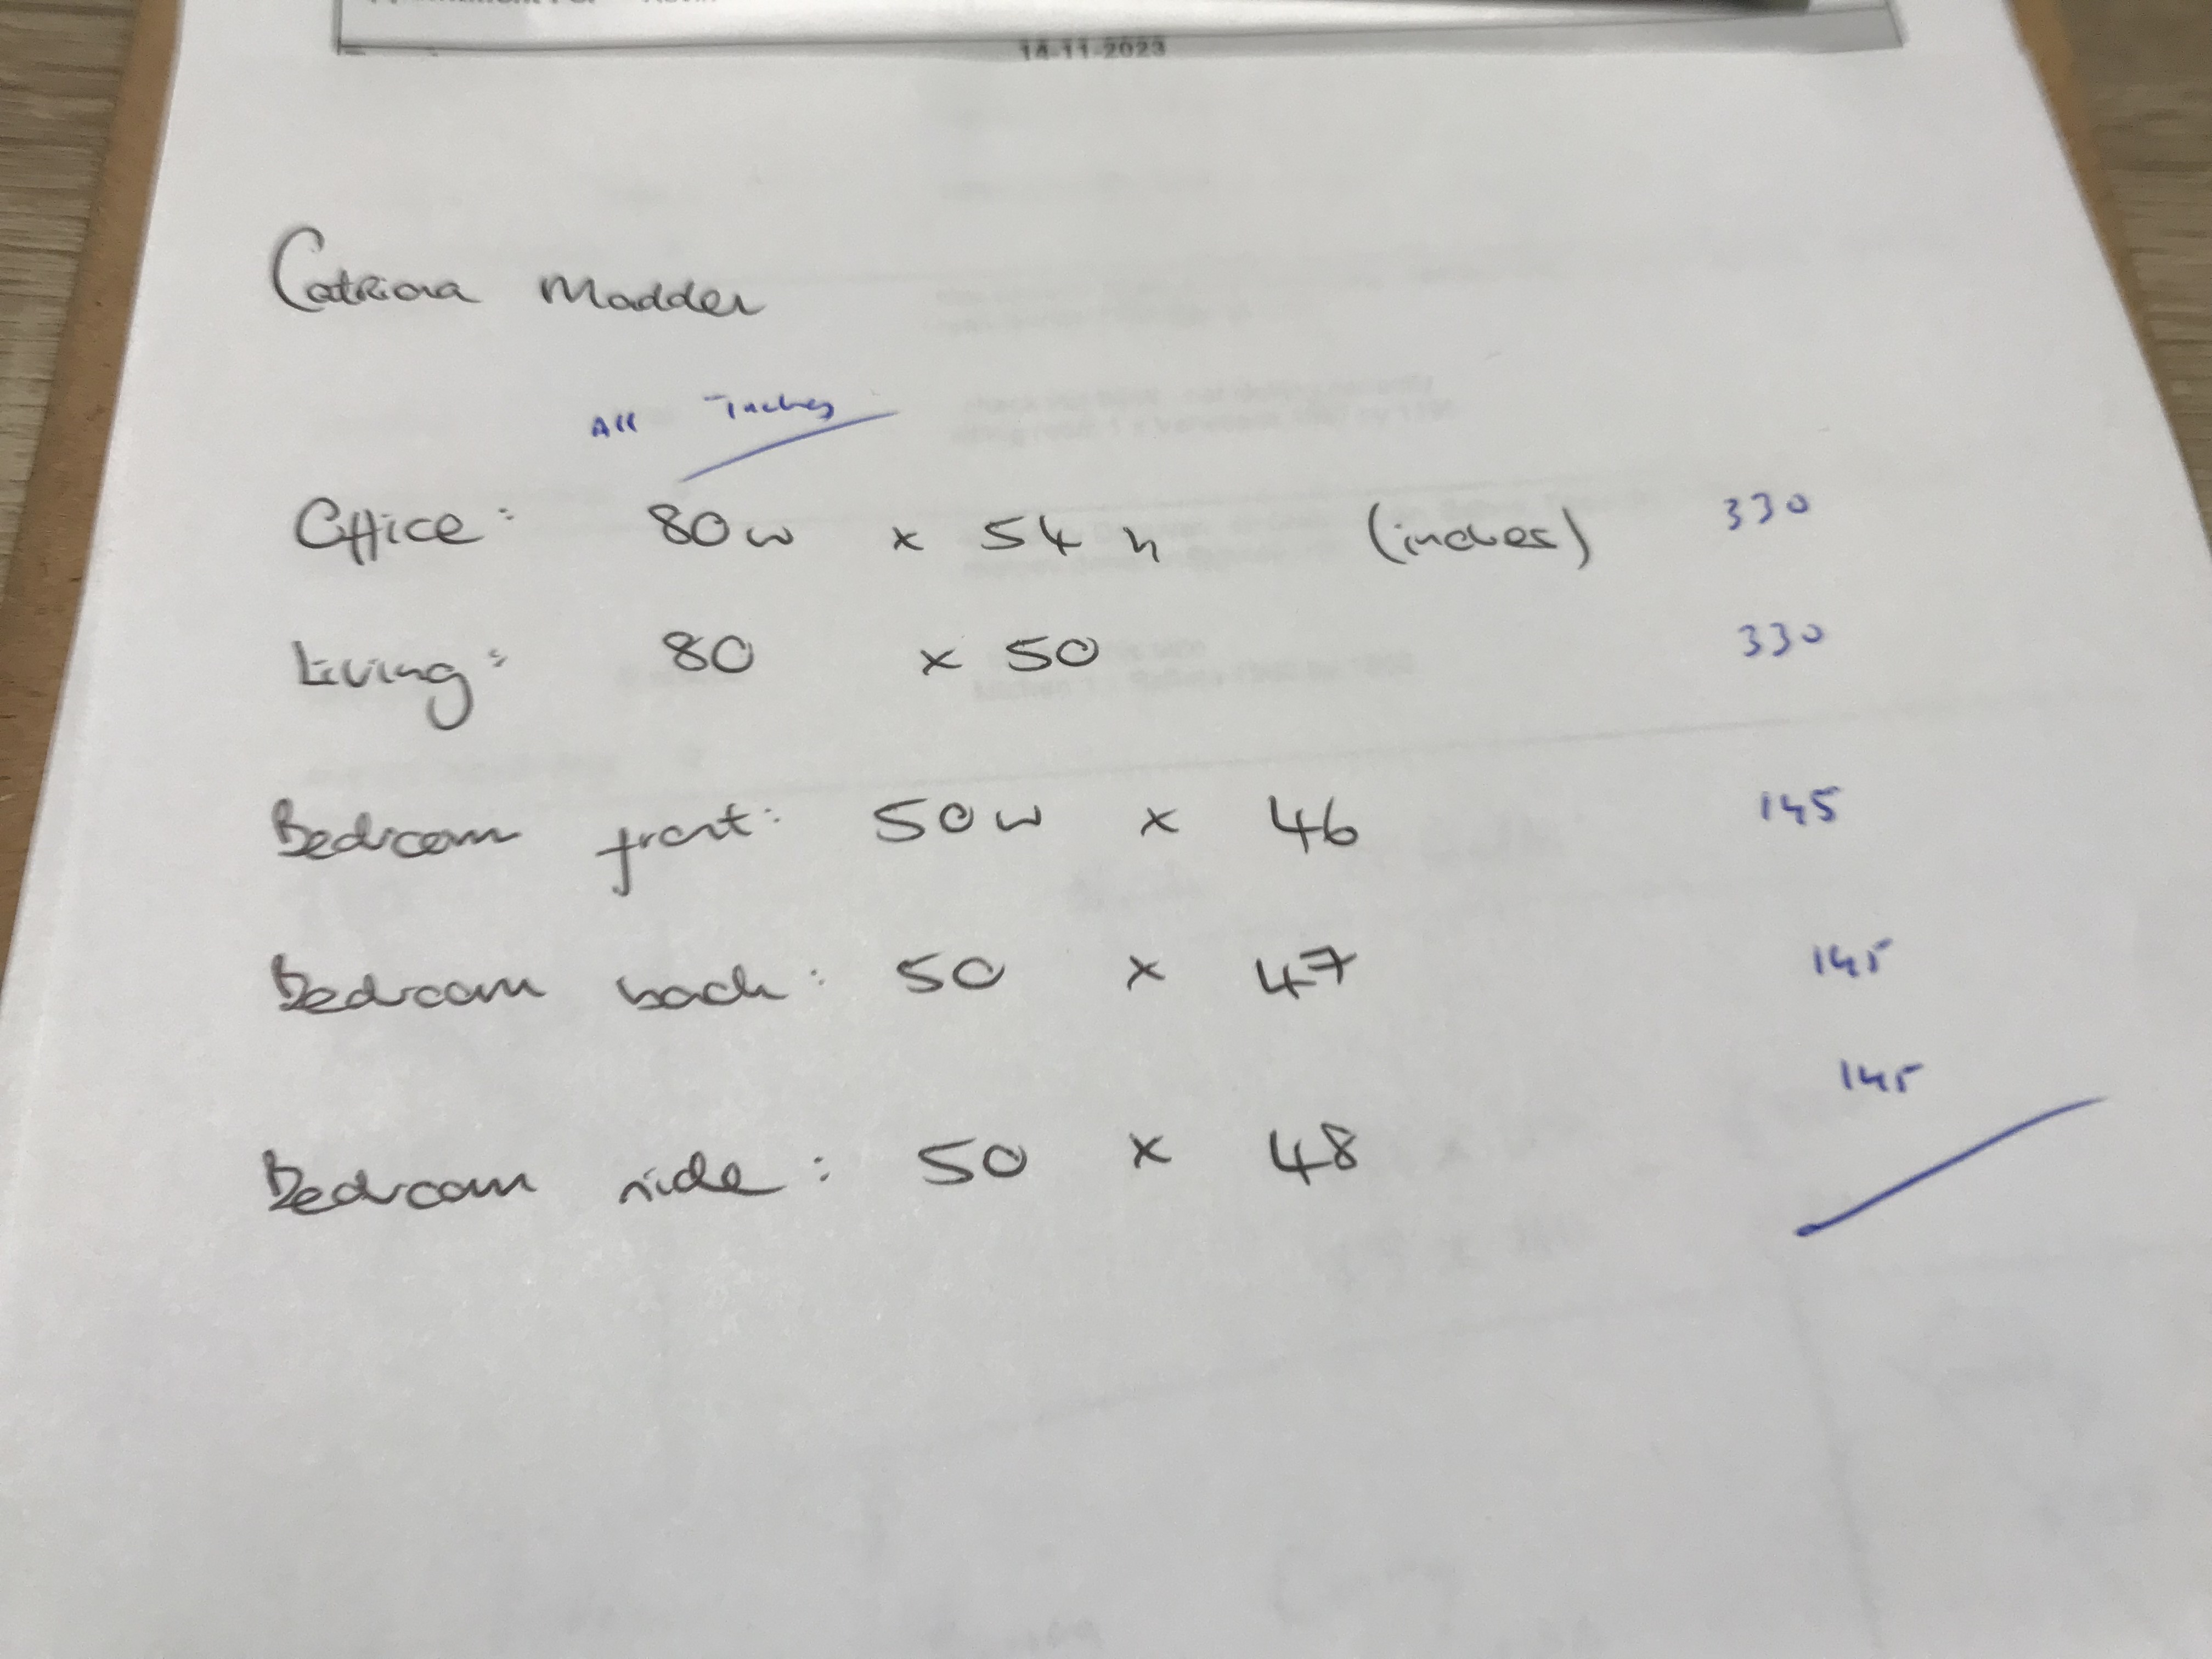 14-11-2023
Catriona Madden
All Inches
Office: 80w x 54 h (inches) 330
Living: 80 x 50 330
Bedroom front: 50w x 46 145
Bedroom back: 50 x 47 145
Bedroom side: 50 x 48 145